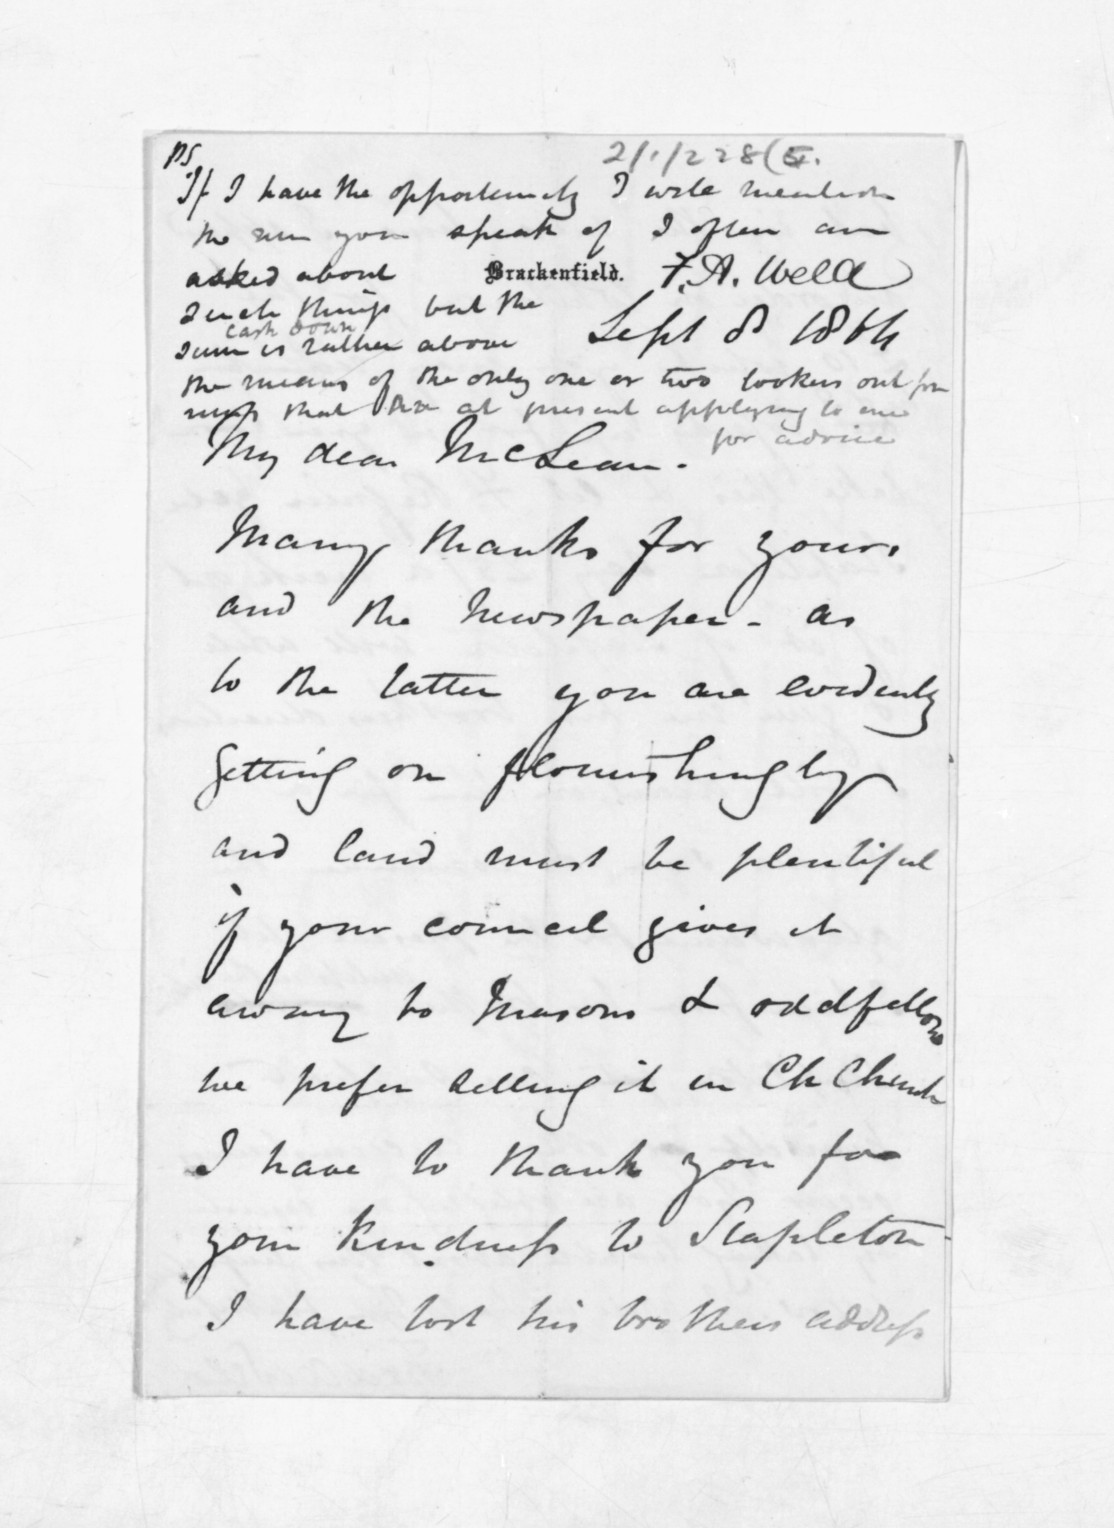 PS
2/1/228(5.
If I have the opportunity I will mention
the run you speak of I often am
asked about
Brackenfield.
F. A. Weld
such things but the
Sept 8 1864
cash down
sum is rather above
the means of the only one or two lookers out for
runs that are at present applying to me
for advice
My dear McLean.
Many thanks for yours
and the newspaper - as
to the latter you are evidently
getting on flourishingly
and land must be plentiful
if your council gives it
away to Masons & oddfellows
we prefer selling it in Ch Church
I have to thank you for
your kindness to Stapleton
I have lost his brothers address